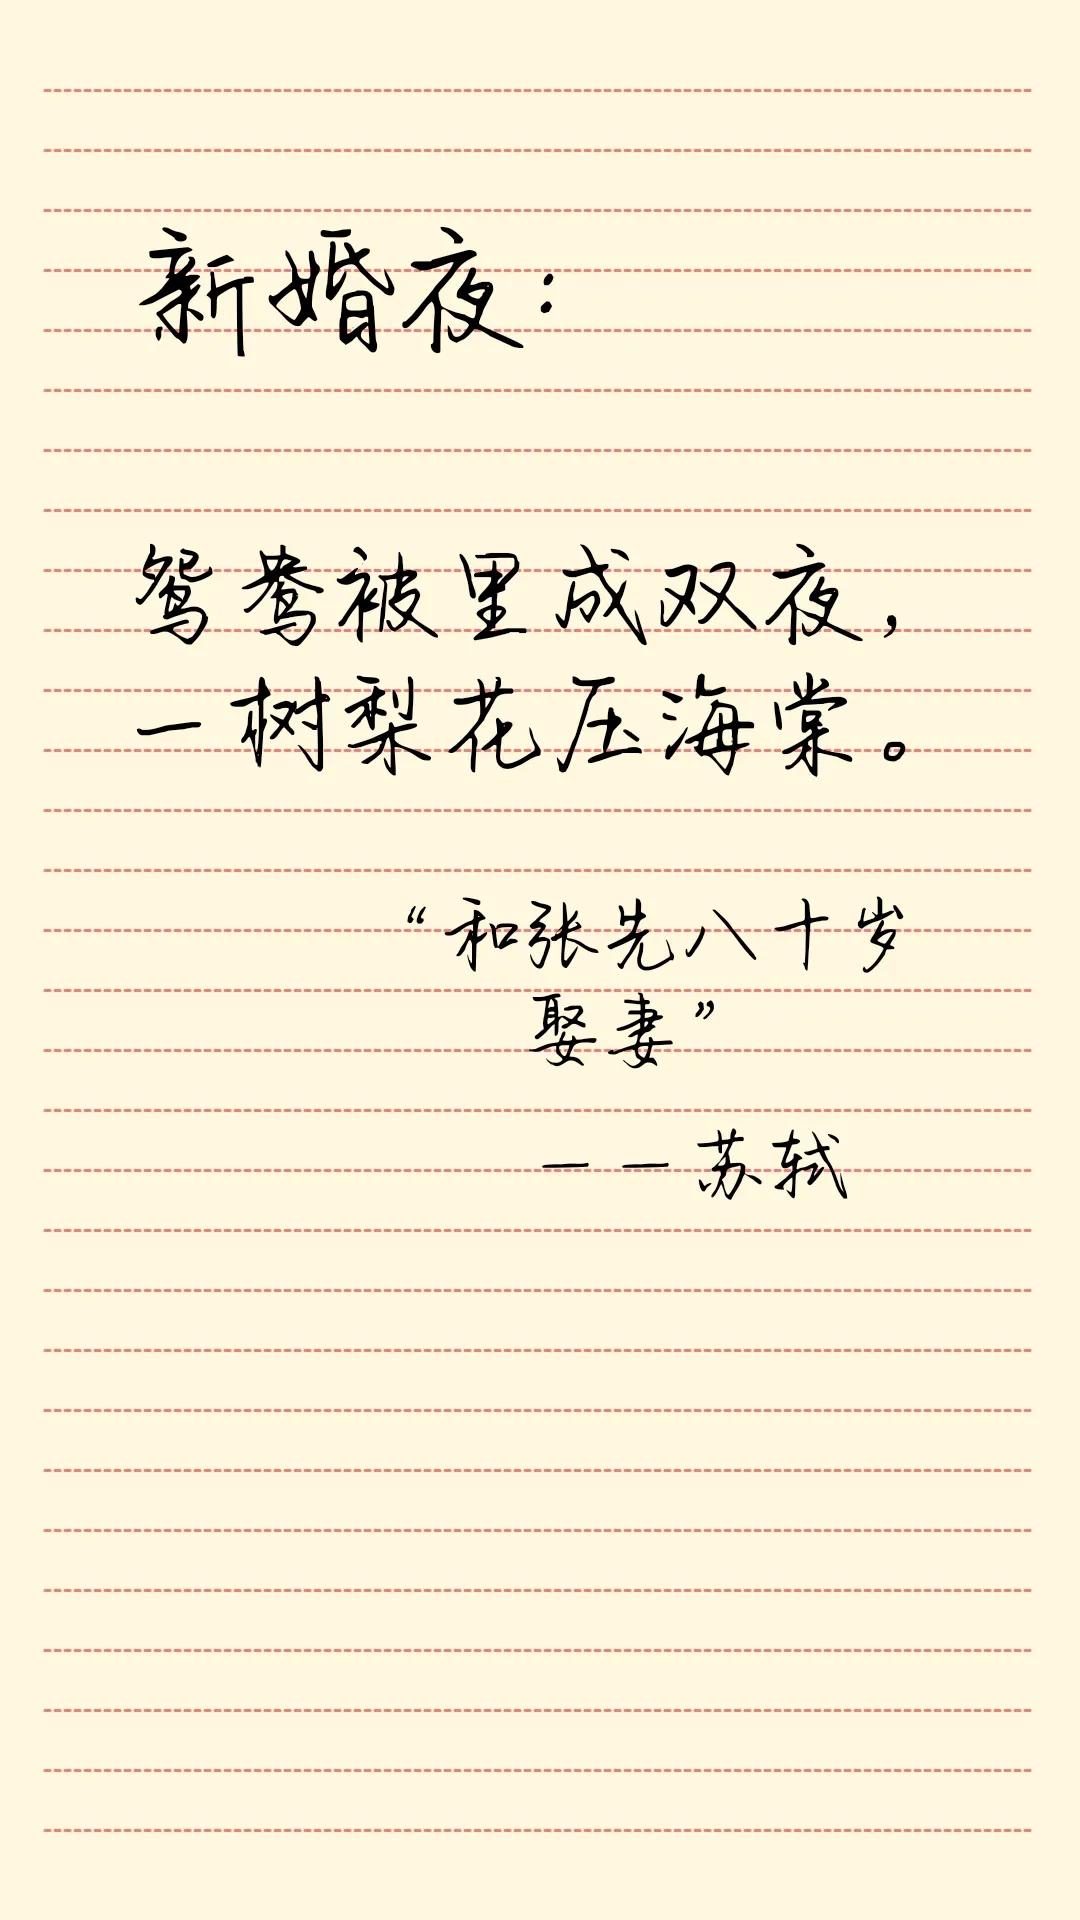 新婚夜：
鸳鸯被里成双夜，
一树梨花压海棠。
“和张先八十岁
娶妻”
——苏轼